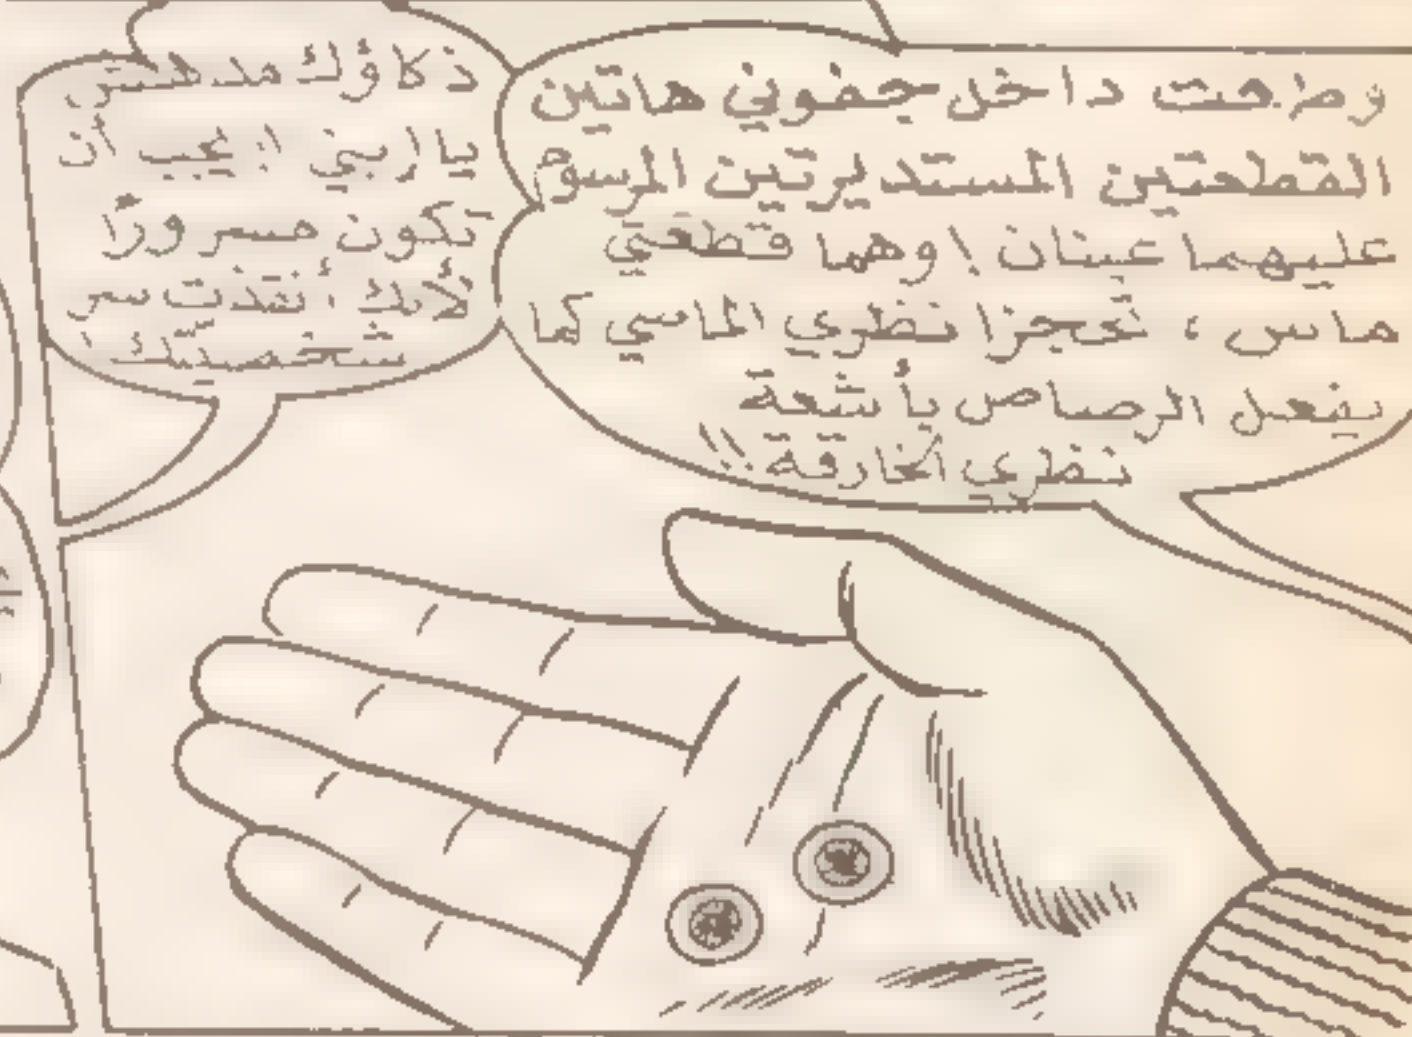 وضعت داخل جفوني هاتين
القطعتين المستديرتين المرسوم
عليهما عينان ! وهما قطعتي
ماس ، تحجزا نظري الماسي كما
يفعل الرصاص بأشعة
نظري الخارقة !!
ذكاؤك مدهش
يا ! يجب أن
تكون مسرورًا
لأنك أنقذت سر
شخصيتك !